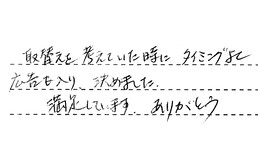 取替えを考えていた時に タイミングよく
広告も入り、決めました。
満足しています。ありがとう